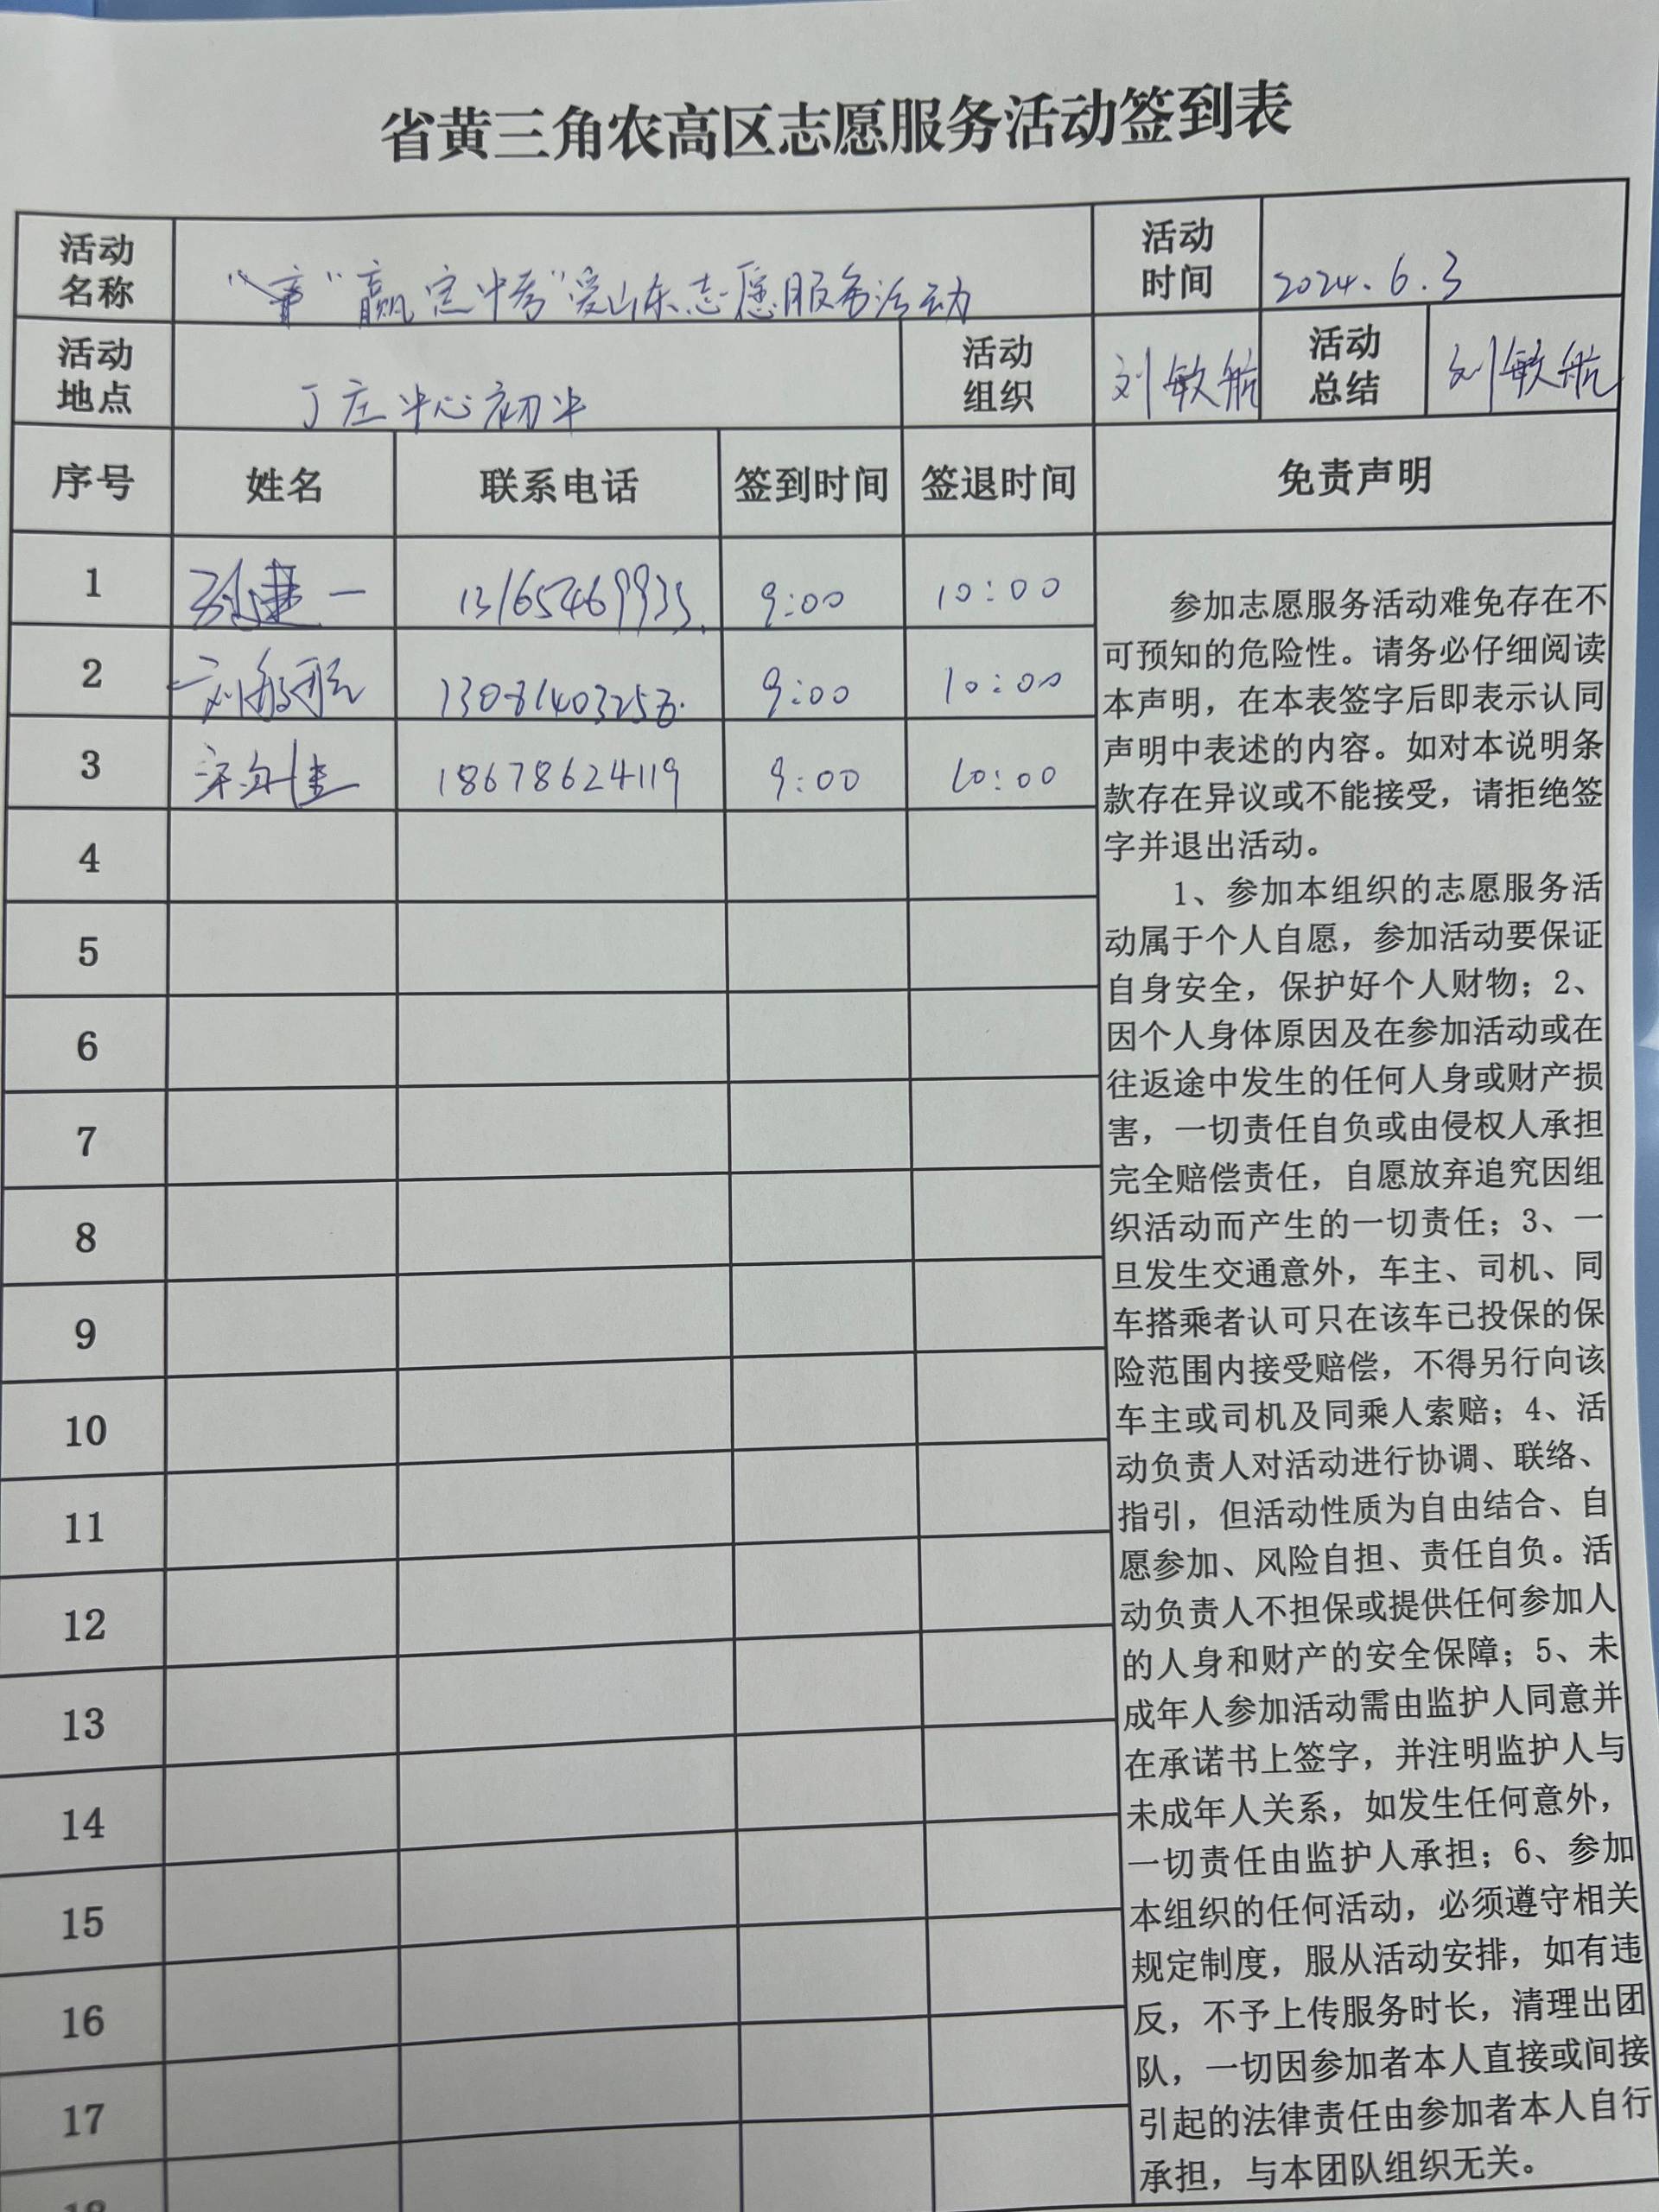 省黄三角农高区志愿服务活动签到表
活动名称 "赢定中考"爱山东志愿服务活动 活动时间 2024.6.3
活动地点 丁庄中心初中 活动组织 刘敏航 活动总结 刘敏航
序号 姓名 联系电话 签到时间 签退时间 免责声明
1 一 13165469935. 9:00 10:00
2 刘 9:00 10:00
3 宋 18678624119 9:00 10:00
4
5
6
7
8
9
10
11
12
13
14
15
16
17
18
参加志愿服务活动难免存在不
可预知的危险性。请务必仔细阅读
本声明，在本表签字后即表示认同
声明中表述的内容。如对本说明条
款存在异议或不能接受，请拒绝签
字并退出活动。
1、参加本组织的志愿服务活
动属于个人自愿，参加活动要保证
自身安全，保护好个人财物；2、
因个人身体原因及在参加活动或在
往返途中发生的任何人身或财产损
害，一切责任自负或由侵权人承担
完全赔偿责任，自愿放弃追究因组
织活动而产生的一切责任；3、一
旦发生交通意外，车主、司机、同
车搭乘者认可只在该车已投保的保
险范围内接受赔偿，不得另行向该
车主或司机及同乘人索赔；4、活
动负责人对活动进行协调、联络、
指引，但活动性质为自由结合、自
愿参加、风险自担、责任自负。活
动负责人不担保或提供任何参加人
的人身和财产的安全保障；5、未
成年人参加活动需由监护人同意并
在承诺书上签字，并注明监护人与
未成年人关系，如发生任何意外，
一切责任由监护人承担；6、参加
本组织的任何活动，必须遵守相关
规定制度，服从活动安排，如有违
反，不予上传服务时长，清理出团
队，一切因参加者本人直接或间接
引起的法律责任由参加者本人自行
承担，与本团队组织无关。